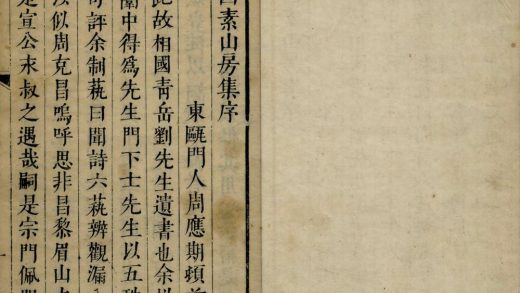 四素山房集序
東甌門人周應期頓首
此故相國青岳劉先生遺書也余以
闈中得爲先生門下士先生以五
評余制蓺曰聞詩六蓺辨觀漏
似周充昌嗚呼思非昌黎眉山
宣公末叔之遇哉嗣是宗門佩